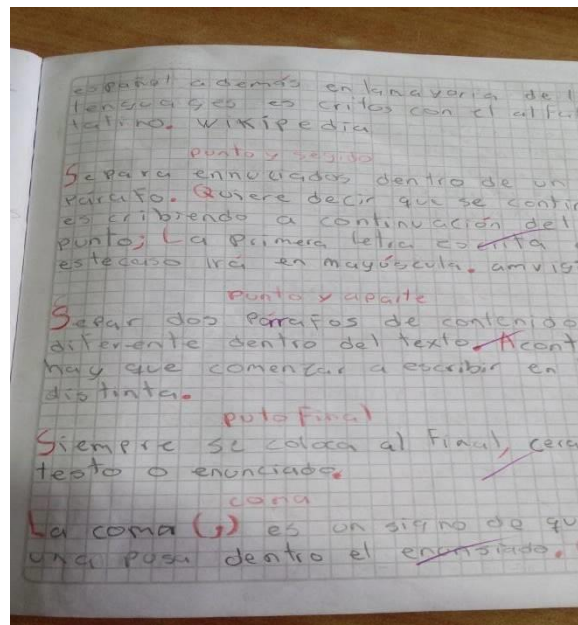 español además en la mayoria de l
lenguages escritos con el alfa
latino. Wikipedia
punto y seguido
Separa ennuciados dentro de un
párafo. Quiere decir que se contin
escribiendo a continuación del
punto; La primera letra escrita
estecaso irá en mayúscula. amvis
punto y aparte
Separ dos párrafos de contenido
diferente dentro del texto. A cont
hay que comenzar a escribir en
distinta.
puto Final
Siempre se coloca al Final, cera
testo o enunciado.
coma
La coma (,) es un signo de qu
una pusa dentro el enunsiado.